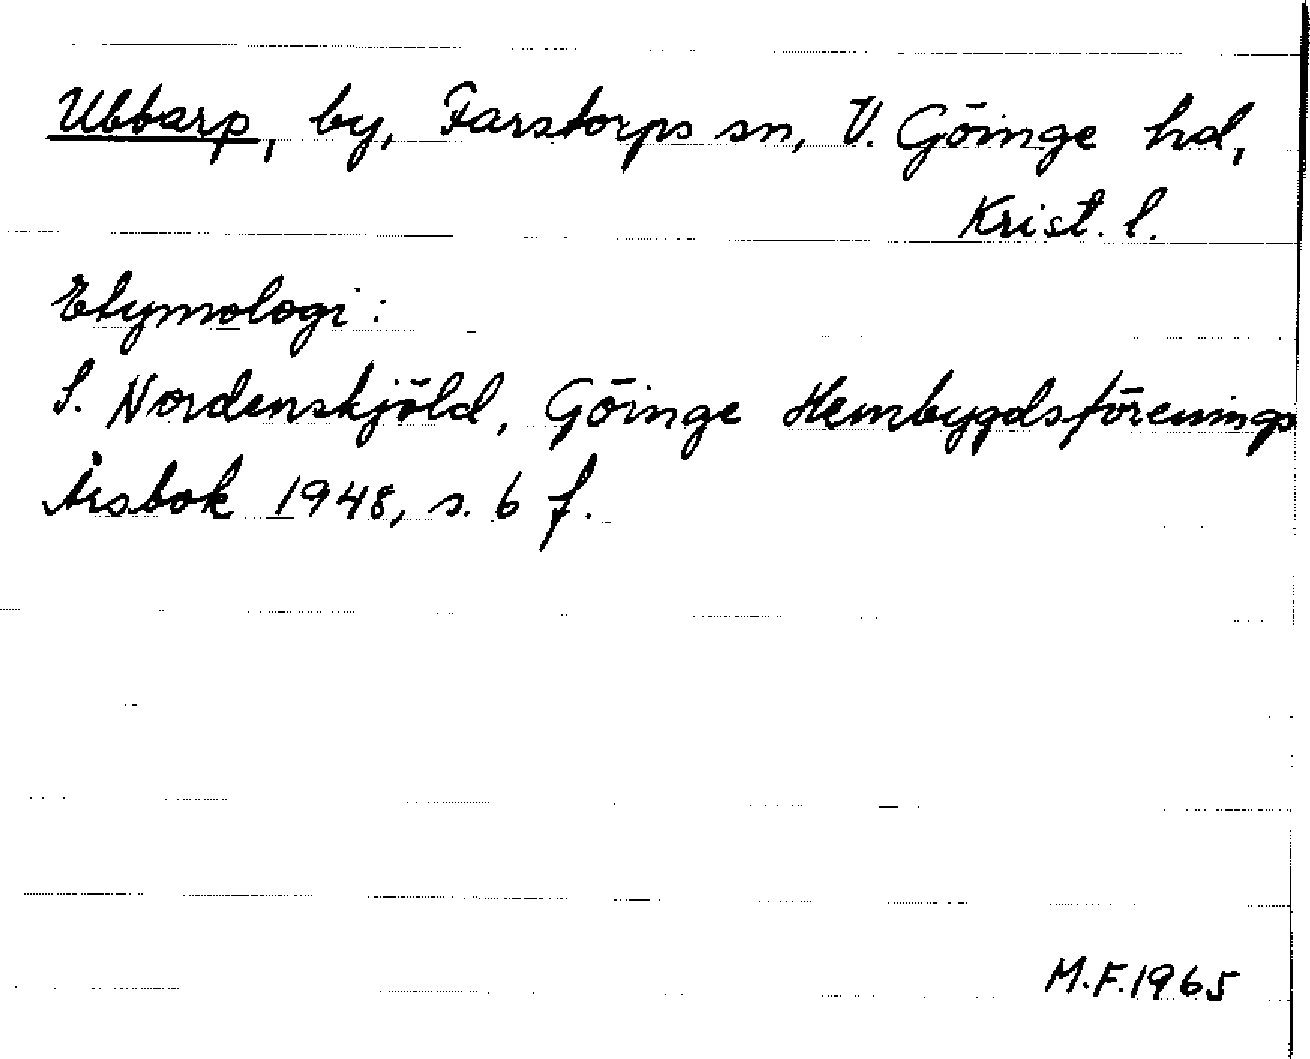 Ubbarp, by, Farstorps sn, V. Göinge hd,
Krist. l.
Etymologi:
S. Nordenskjöld, Göinge Hembygdsförenings
Årsbok 1948, s. 6 f.
M.F. 1965